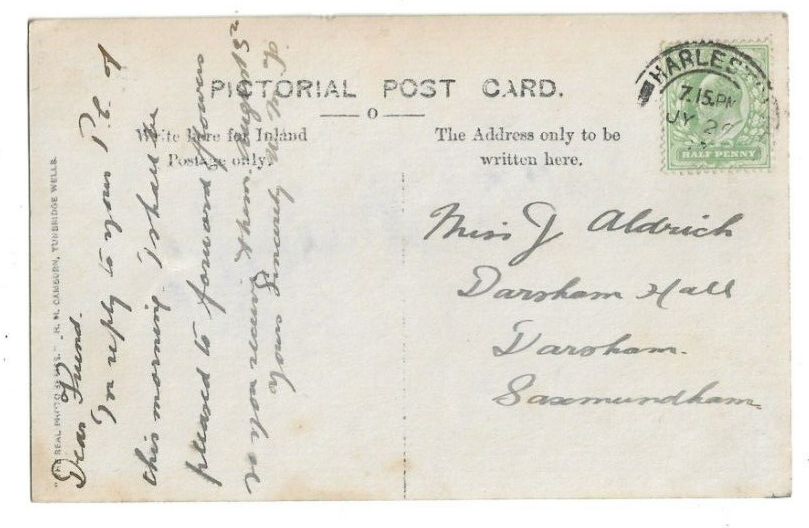 PICTORIAL POST CARD.
Write here for Inland
Postage only.
The Address only to be
written here.
HARLESTON
7.15.PM
JY 2
HALF PENNY
Miss J Aldrich
Darsham Hall
Darsham.
Saxmundham.
Dear Friend.
In reply to your P.C. of
this morning. I shall be
pleased to forward flowers
so you receive them
Yours Sincerely
"THE REAL PHOTO SERIES." R. N. CAMBURN, TUNBRIDGE WELLS.